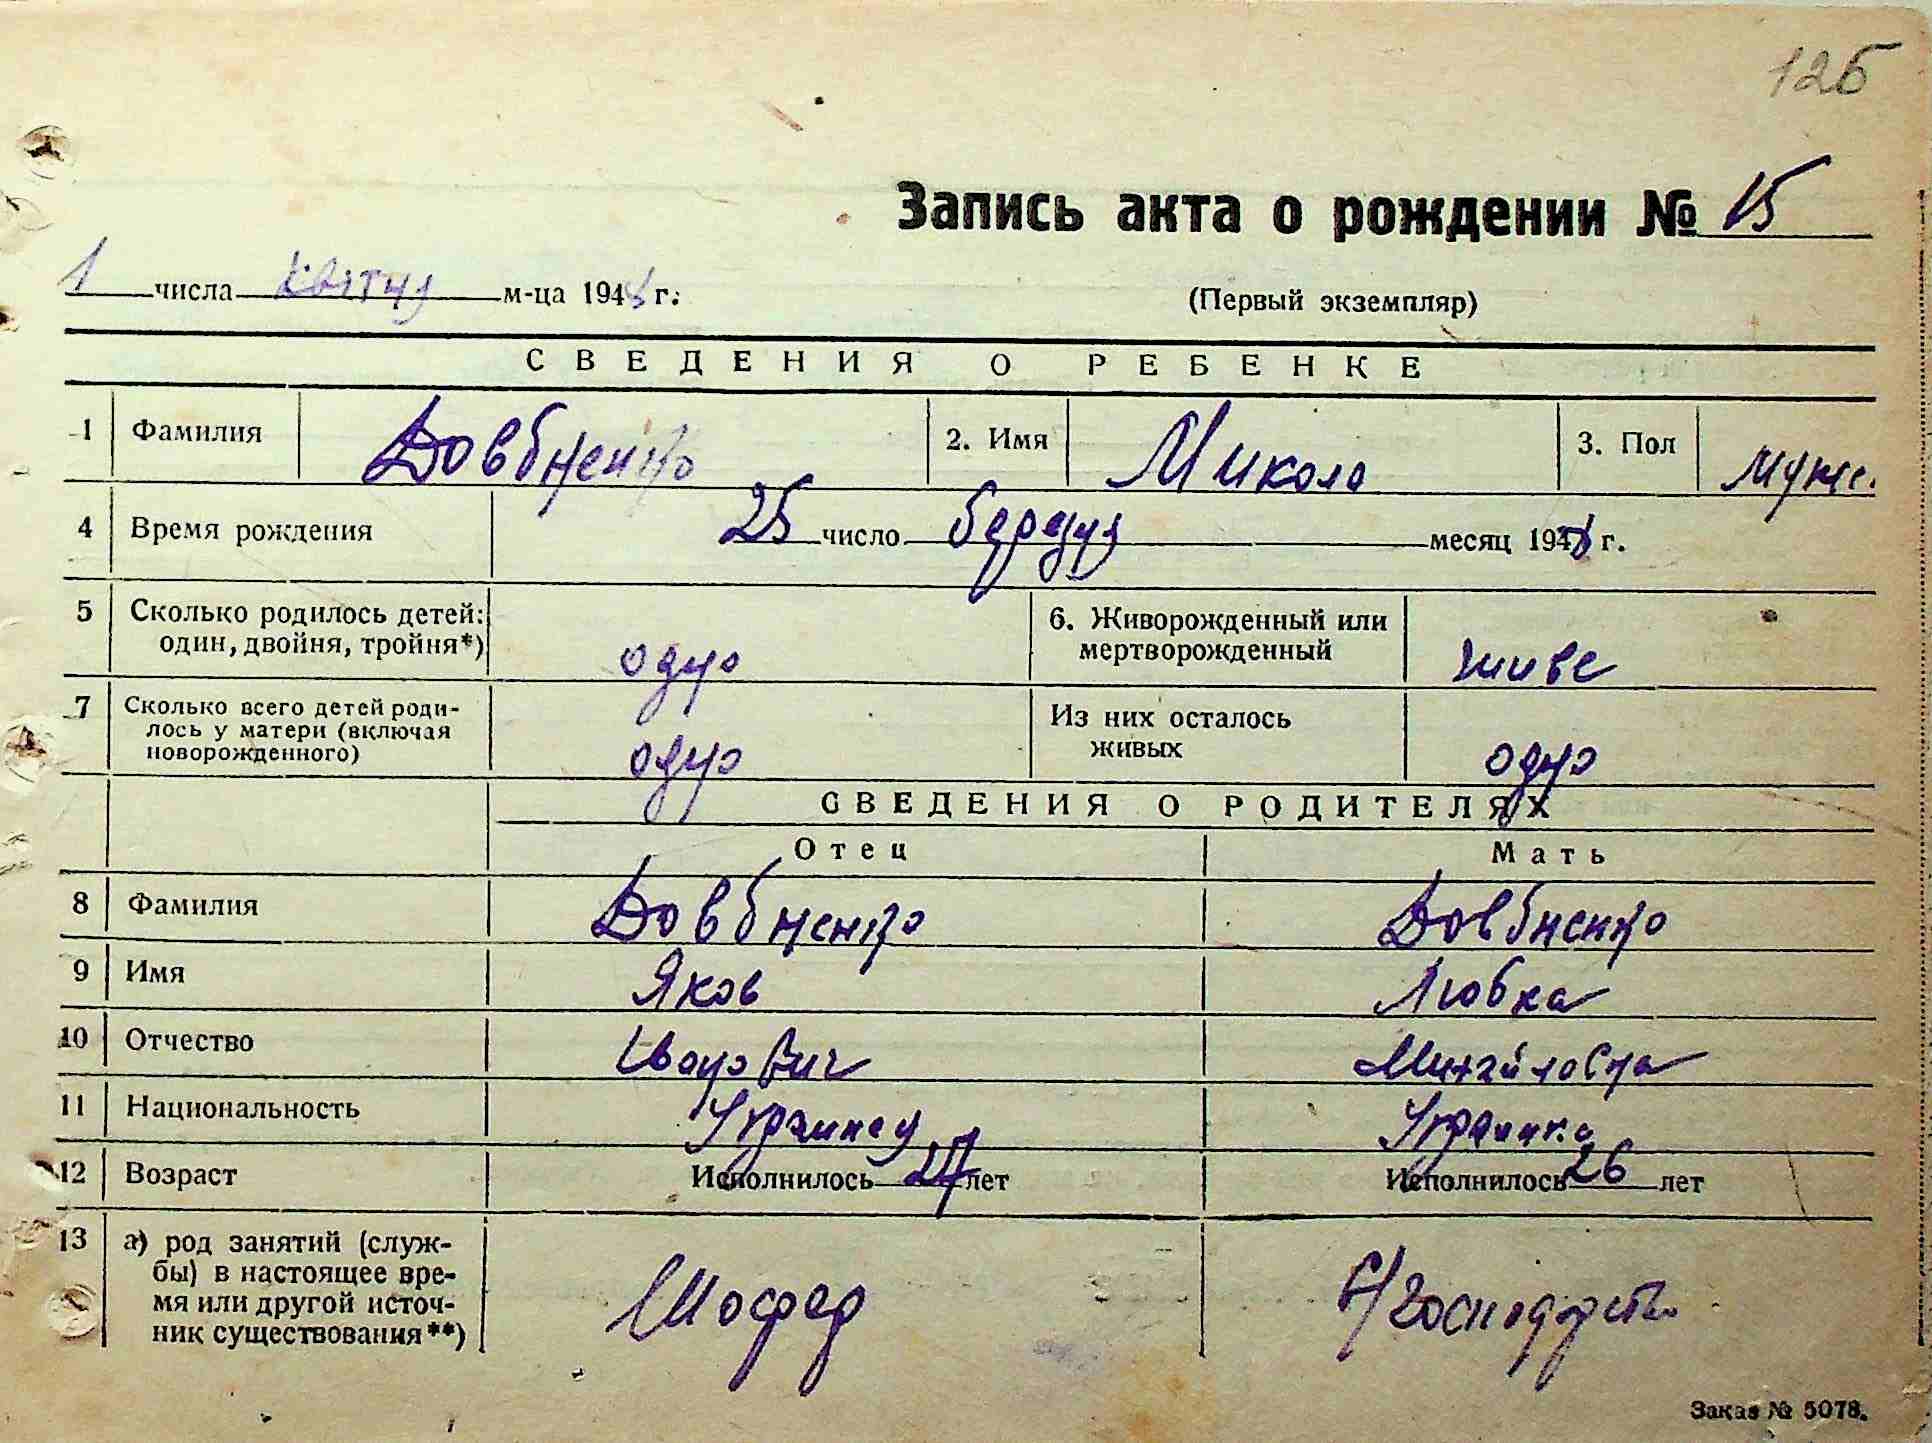 126
Запись акта о рождении № 15
1 числа квітня м-ца 1948 г.
(Первый экземпляр)
СВЕДЕНИЯ О РЕБЕНКЕ
1 Фамилия Довбненко 2. Имя Микола 3. Пол муж.
4 Время рождения 25 число березня месяц 1948 г.
5 Сколько родилось детей: один, двойня, тройня*) одно 6. Живорожденный или мертворожденный живе
7 Сколько всего детей роди-
лось у матери (включая
новорожденного) одно Из них осталось живых одно
СВЕДЕНИЯ О РОДИТЕЛЯХ
Отец Мать
8 Фамилия Довбненко Довбненко
9 Имя Яков Любка
10 Отчество Іванович Михайловна
11 Национальность Украинец Украинка
12 Возраст Исполнилось 27 лет Исполнилось 26 лет
13 а) род занятий (служ-
бы) в настоящее вре-
мя или другой источ-
ник существования**) Шофер С/господарстві
Заказ № 5078.